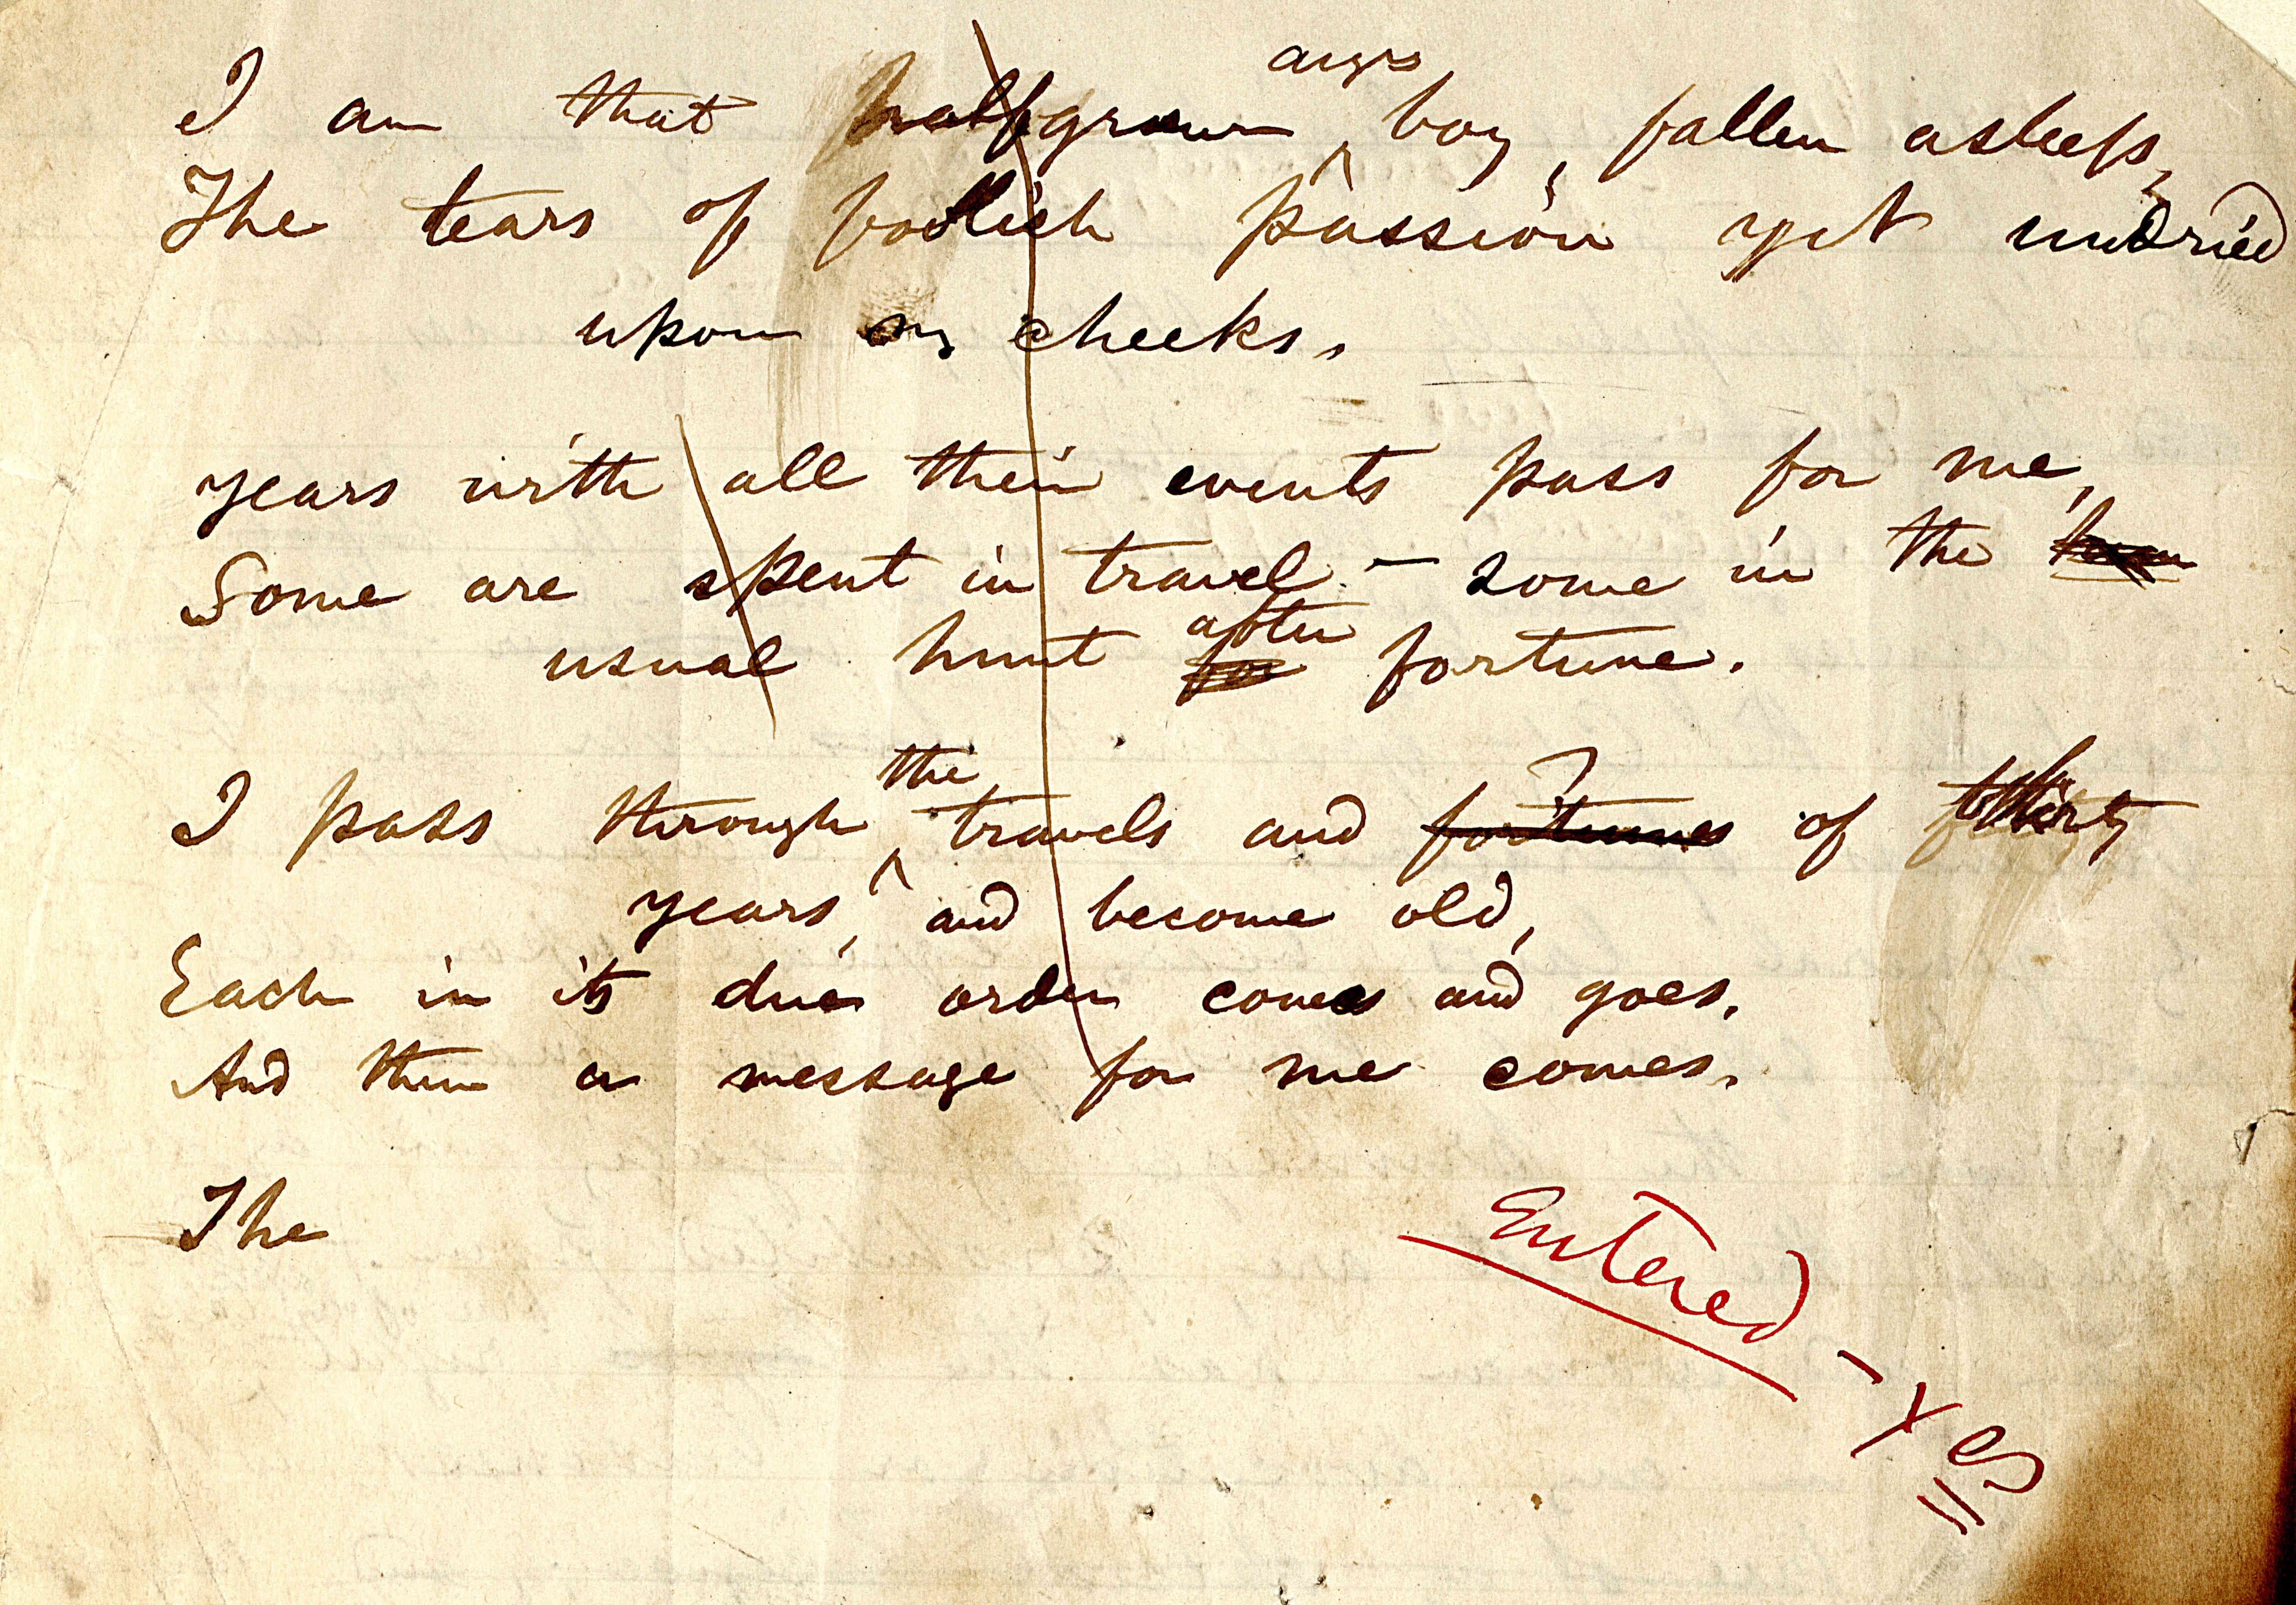 I am that halfgrown angry boy, fallen asleep,
The tears of foolish passion yet undried
upon my cheeks.
years with all their events pass for me,
Some are spent in travel – some in the
usual hunt for after fortune.
I pass through the travels and fortunes ? of thirty
years, and become old,
Each in its due order comes and goes,
And then a message for me comes.
The
Entered – Yes